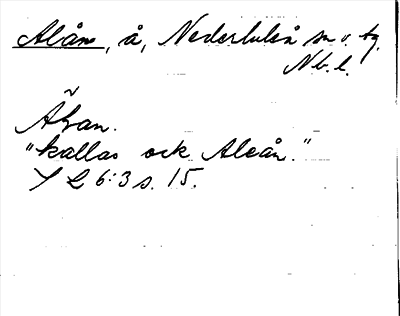 Alån, å, Nederluleå sn o. tg.
Nb. l.
Åhan.
"kallas ock Aleån."
S L 6:3 s. 15.